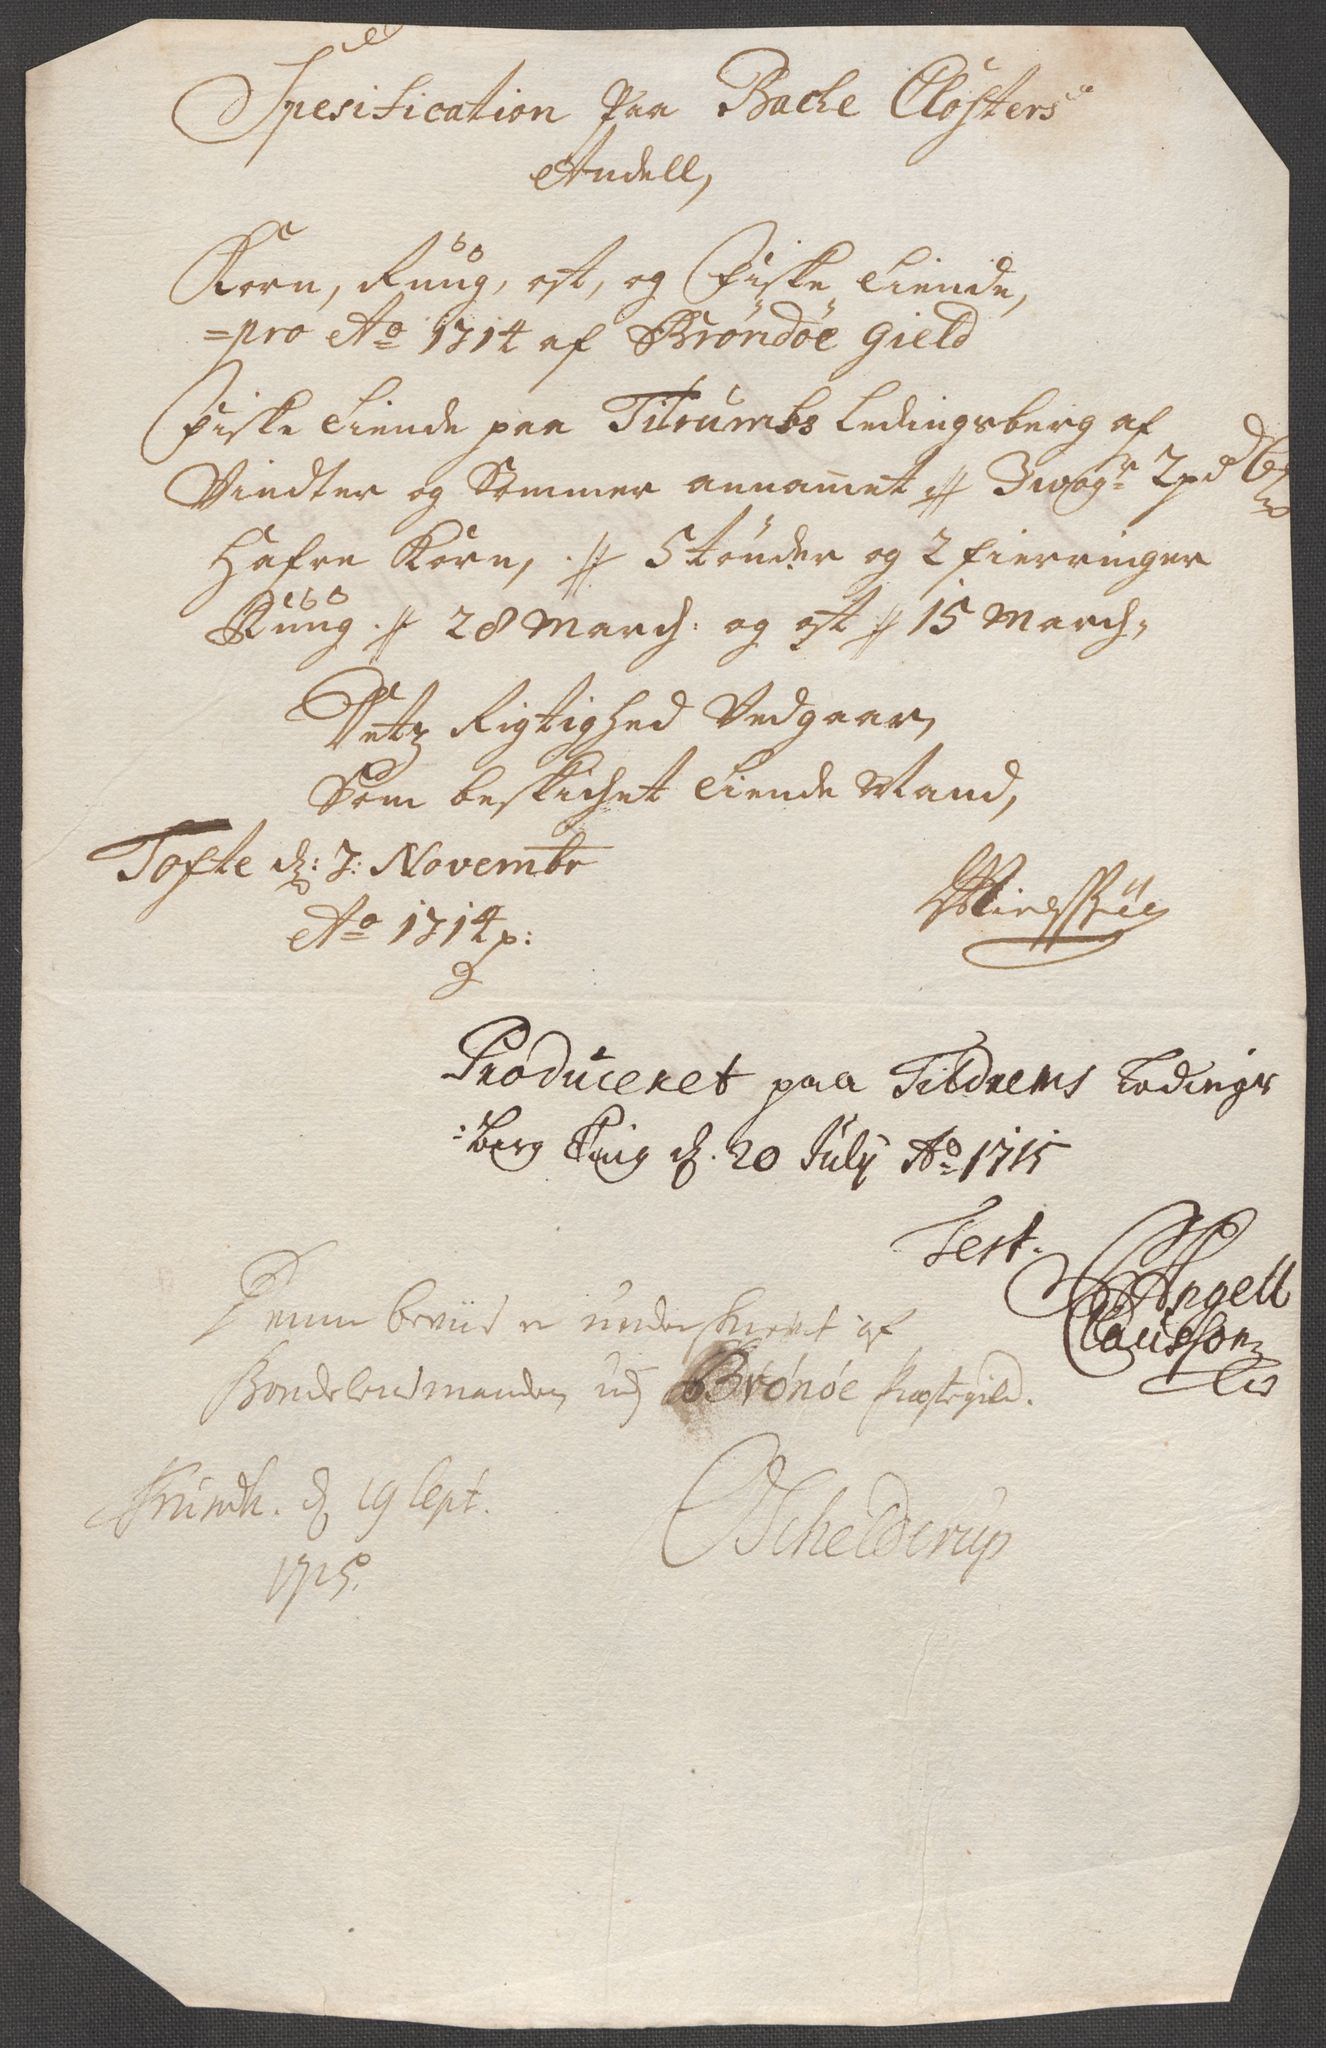 Spesification Paa Backe Closters
Andell,
Korn, Ruug, ost, og Fiske Tiende,
=pro Ao 1714 af Bröndöe gield
Fiske Tiende paa Titrumbs Ledingsberg af
Vindter og Sommer annammet // 3 wogr 2 pd
Hafre Korn, // 5 tönder og 2 fierringer
Ruug // 28 March: og ost // 15 March,
Dets Rigtighed Vedgaar,
Som beskichet Tiende Mand,
Tofte d: 7: Novembr
Ao 1714 p:
Produceret paa Tildrems Ledings
:berg Ting d. 20 July Ao 1715
Test.
Angell
Clausson
Denne beviis er underskrevet af
Bondelensmanden ud Brönöe Præstegield.
Trundh. d 19 Sept.
1715.
Schelderup